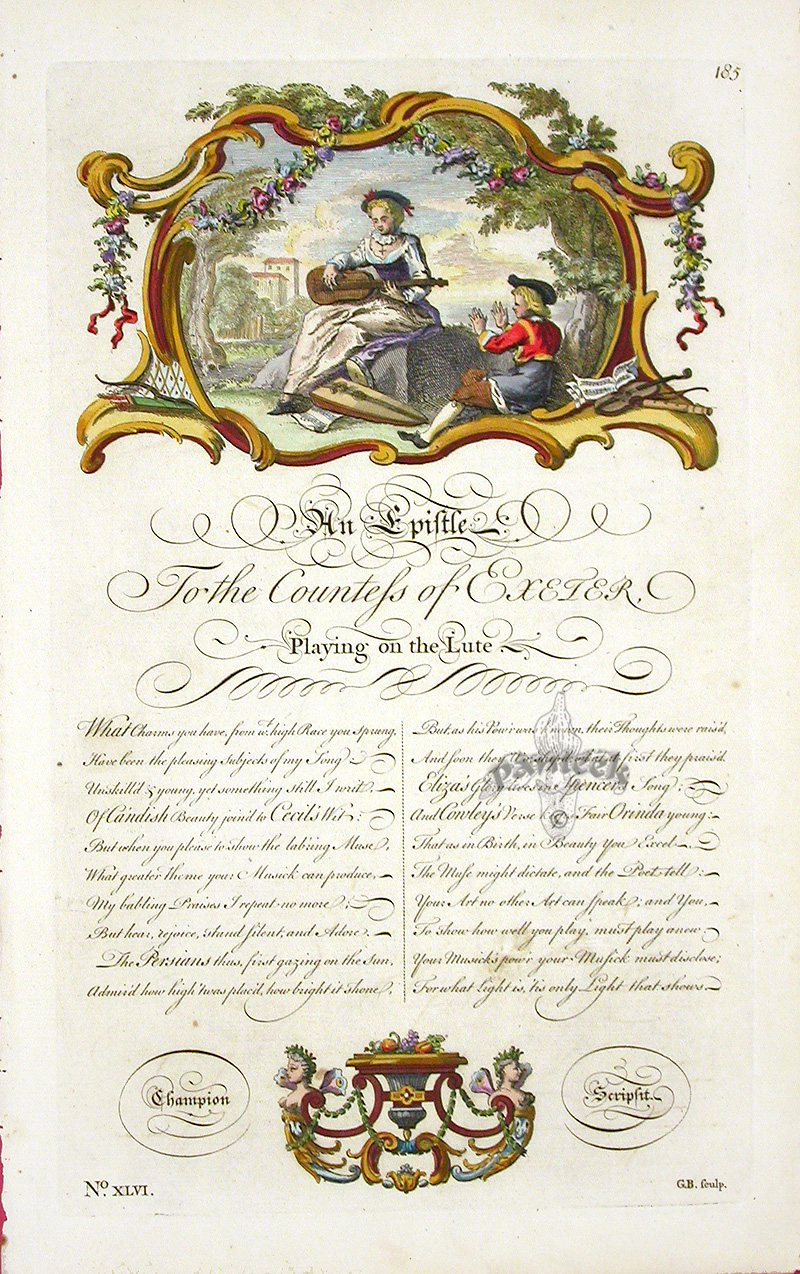 185
An Epistle
To the Countess of EXETER,
Playing on the Lute
What Charms you have, from wt. high Race you sprung,
Have been the pleasing Subjects of my Song:
Unskill'd & young, yet something still I writ,
Of Ca'ndish Beauty join'd to Cecil's Wit:
But when you please to show the lab'ring Muse,
What greater theme your Musick can produce,
My babling Praises I repeat no more;
But hear, rejoice, stand silent, and Adore.
The Persians thus, first gazing on the Sun,
Admir'd how high 'twas plac'd, how bright it shone,
But, as his Pow'r was known, their Thoughts were rais'd,
And soon they worship'd, what at first they prais'd.
Eliza's Glory lives in Spencer's Song;
And Cowley's Verse Fair Orinda young:
That as in Birth, in Beauty You Excel,
The Muse might dictate, and the Poet tell:
Your Art no other Art can speak; and You,
To show how well you play, must play anew
Your Musick's pow'r your Musick must disclose;
For what Light is, 'tis only Light that shows.
Champion
Scripsit.
No. XLVI.
G.B. sculp.
panteek
©